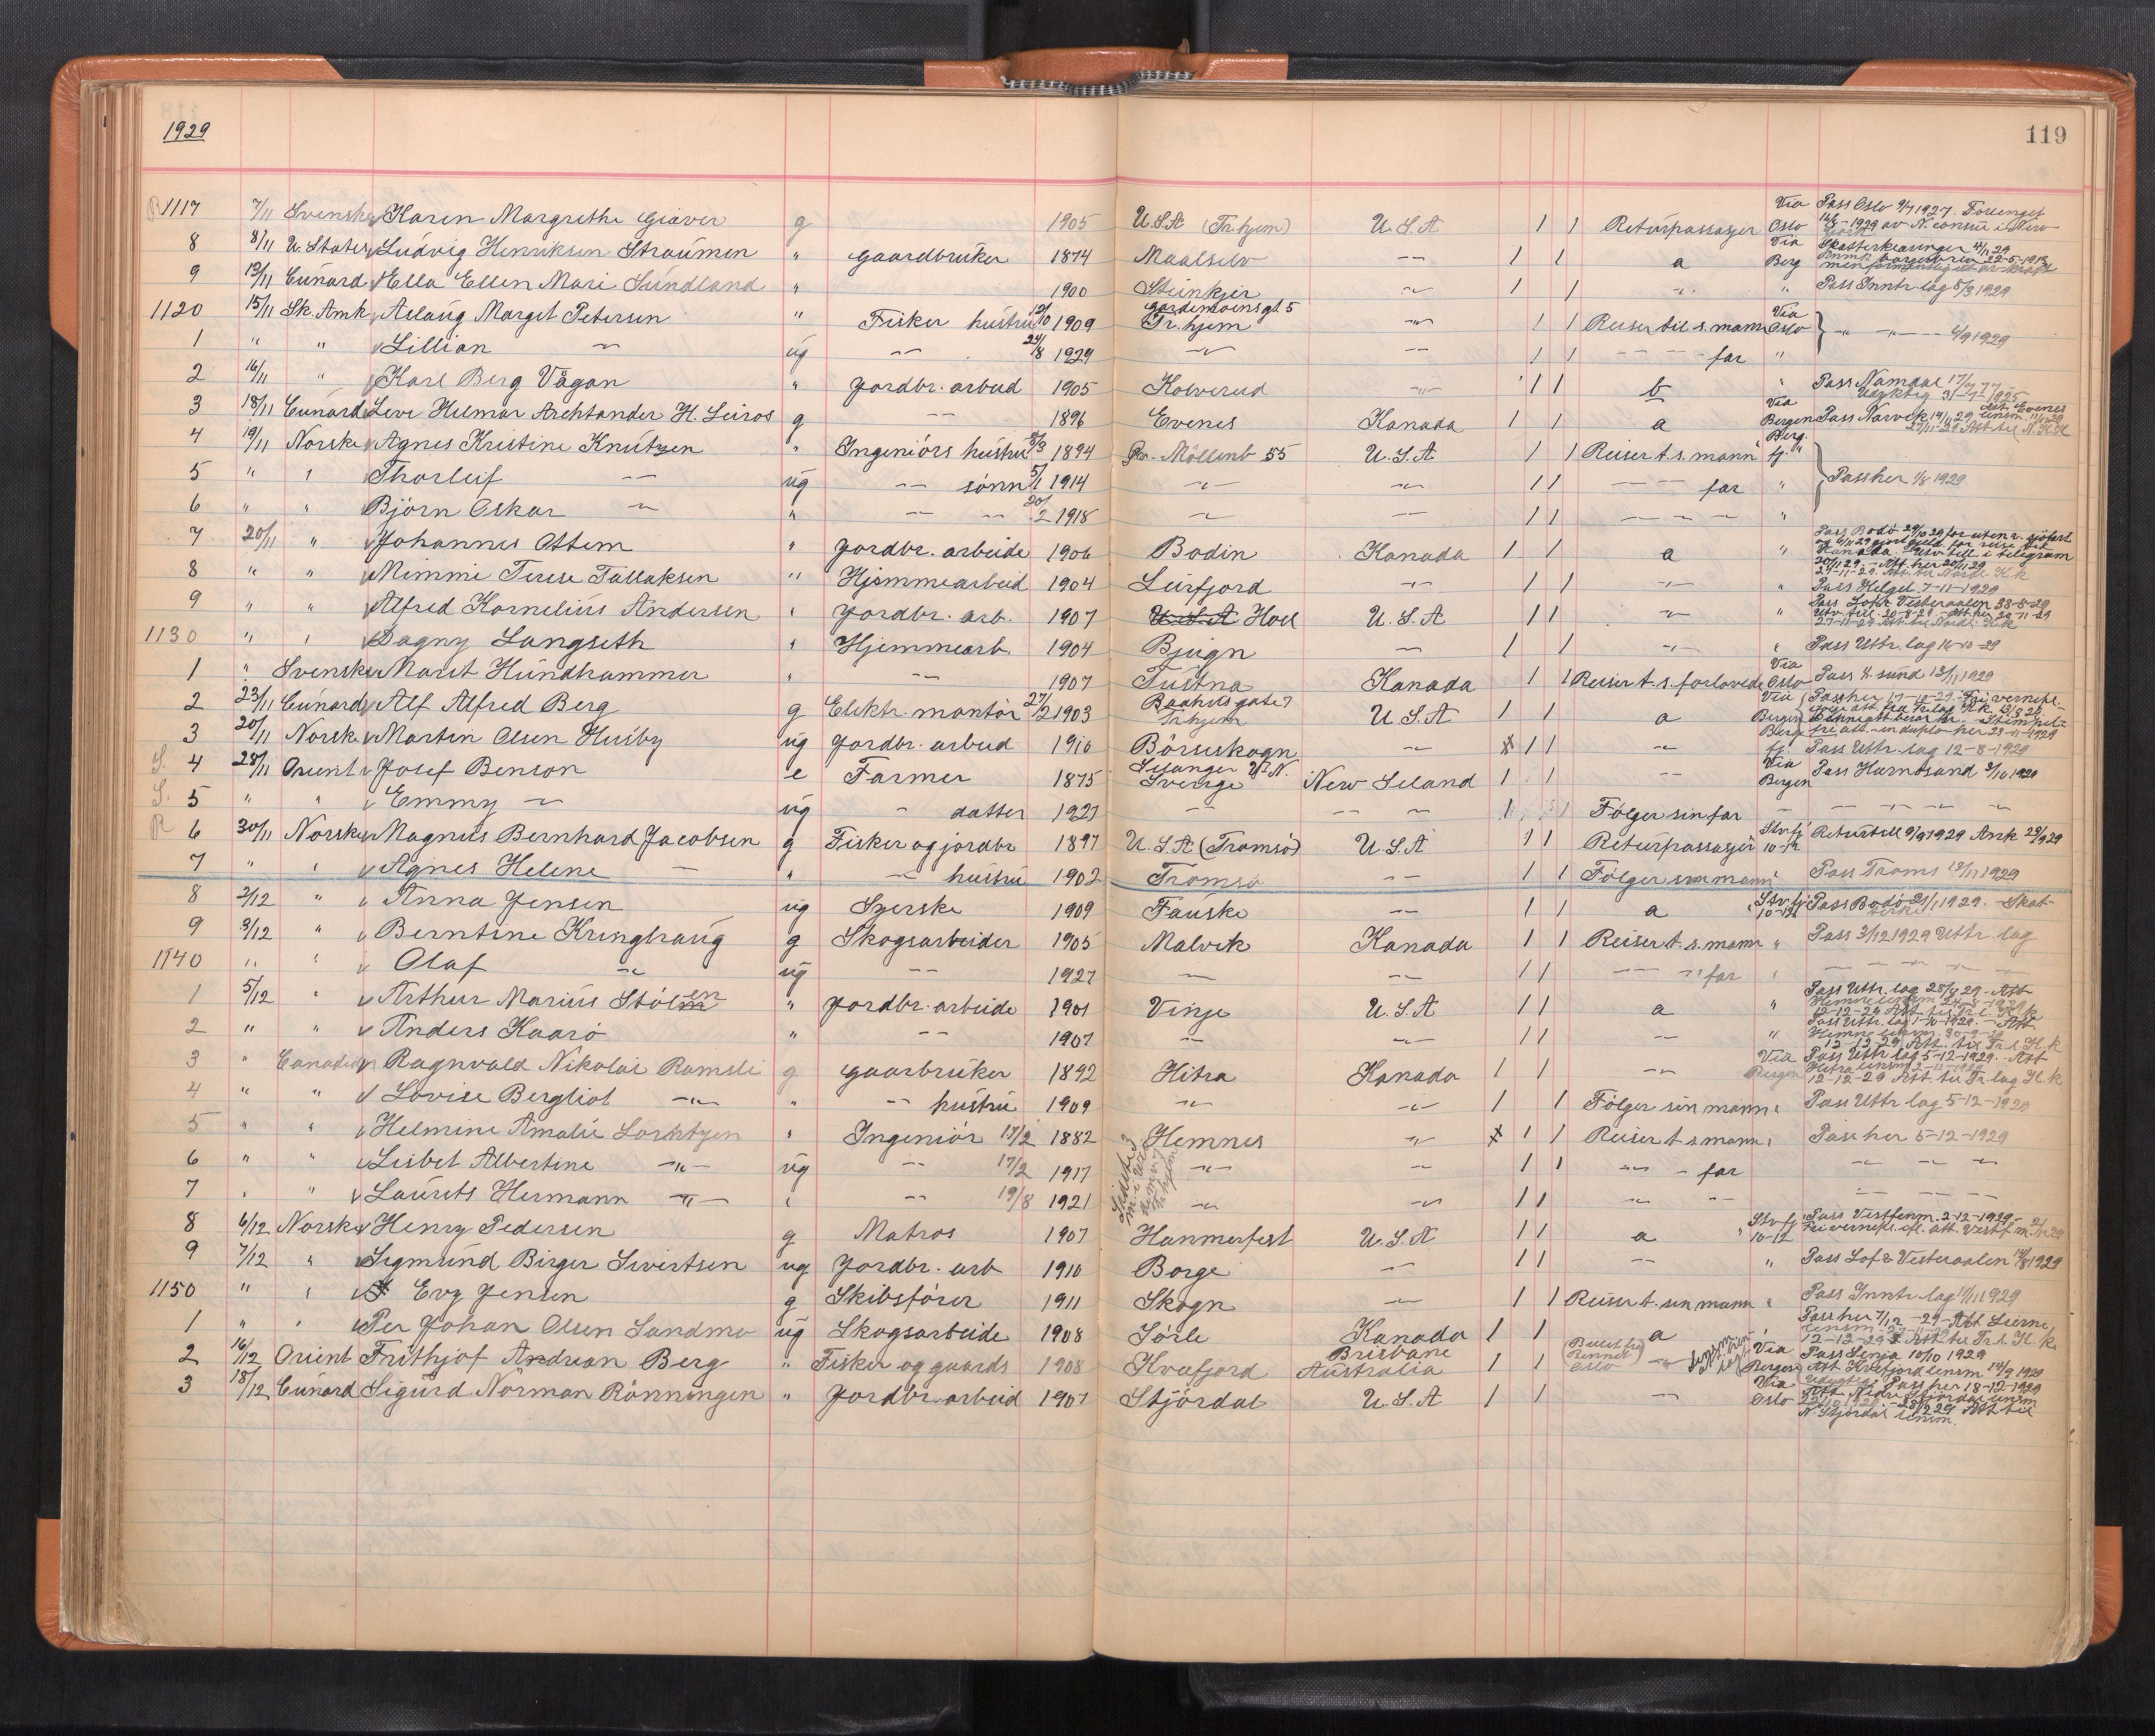 1929
119
R 1117 7/11 Svenske Karen Margrethe Giæver g 1905 U.S.A (Tr.hjem) U.S.A 1 1 Returpassasjer Via Oslo Pass Oslo 9/7 1927. Forlenget 1929 av N. consul i New York
8 8/11 U. States Ludvig Henriksen Straumen " Gaardbruker 1874 Maalselv -"- 1 1 a Via Berg Skatterkæringer 4/11 29
9 13/11 Cunard Ella Ellen Mari Sundland " 1900 Steinkjer -"- 1 1 -"- " Pass Inntr.lag 5/3 1929
1120 15/11 Sk. Amk Aslaug Margit Petersen " Fisker hustru 12/10 1909 Gardemoensgt 5 Tr.hjem -"- 1 1 Reiser til s. mann Via Oslo } -"- -"- 4/9 1929
1 " " Lillian -"- ug -"- 24/8 1929 -"- -"- 1 1 - - - far "
2 16/11 " Karl Berg Vågan " Jordbr. arbeid 1905 Kolvereid -"- 1 1 b " Pass Namdal
3 18/11 Cunard Leve Hilmar Archtander H. Leiros g -"- 1896 Evenes Kanada 1 1 a Via Bergen Pass Narvik 14/11 29
4 19/11 Norske Agnes Kristine Knutzen " Ingeniörs hustru 1894 Öv. Möllenb 55 U.S.A 1 1 Reiser t. s. mann Berg. fj.
5 " " Thorleif -"- ug -"- sönn 5/1 1914 -"- -"- 1 1 - - far " } Pass her 1/8 1929
6 " " Björn Oskar -"- " -"- -"- 20/2 1918 -"- -"- 1 1 - - - "
7 20/11 " Johannes Ottem " Jordbr. arbeide 1906 Bodin Kanada 1 1 a " Pass Bodö 29/10 29 for uten r. sjöfart
Kanada. Utv till i telegram
8 " " Mimmi Terese Tallaksen " Hjemmearbeid 1904 Leirfjord -"- 1 1 -"- " Pass Helgel 7-11-1929
9 " " Alfred Kornelius Andersen " Jordbr. arb. 1907 U.S.A Hol U.S.A 1 1 -"- " Pass Lof & Vesteraalen 28-8-29
1130 " " Dagny Langseth " Hjemmearb 1904 Bjugn -"- 1 1 -"- " Pass Uttr. lag 16-10-29
1 " Svenske Marit Hundhammer " -"- 1907 Tustna Kanada 1 1 Reiser t. s. forlovede Via Oslo Pass K. sund 13/11 1929
2 23/11 Cunard Alf Alfred Berg g Elektr. montör 27/2 1903 Baahusgate 7 Tr.hjem U.S.A 1 1 a Via Bergen Pass her 17-10-29
3 20/11 Norske Martin Olsen Husby ug Jordbr. arbeid 1910 Börseskogn -"- 1 1 -"- Berg fj. Pass Uttr. lag 12-8-1929
S. 4 28/11 Orient Josef Benson e Farmer 1875 Selanger V. N. Sverge New Seland 1 1 -"- Via Bergen Pass Harnösand 3/10 1929
S. 5 " " Emmy -"- ug - datter 1927 -"- -"- 1 1 Fölger sin far - -"- -"- -"-
R 6 30/11 Norske Magnus Bernhard Jacobsen g Fisker og jordbr 1897 U.S.A (Tromsö) U.S.A 1 1 Returpassasjer Stv.fj 10-12 Returtill 9/9 1929 Ank 23/ 1929
7 " " Agnes Helene -"- " -"- hustru 1902 Tromsö -"- 1 1 Fölger sin mann " Pass Troms 13/11 1929
8 2/12 " Anna Jensen ug Syerske 1909 Fauske -"- 1 1 a Stv.fj 10-12 Pass Bodö 21/11 1929. Skat-
9 3/12 " Berntine Kringhaug g Skogsarbeider 1905 Malvik Kanada 1 1 Reiser t. s. mann " Pass 3/12 1929 Uttr. lag
1140 " " Olaf -"- ug -"- 1927 -"- -"- 1 1 -"- far " -"- -"-
1 5/12 " Arthur Marius Stölen " Jordbr. arbeide 1901 Vinje U.S.A 1 1 a " Pass Uttr. lag 28/8 29 - Att
12-12-29 Att til Tr. l. H. k
2 " " Anders Kaarö " -"- 1907 -"- -"- 1 1 -"- " Pass Uttr. lag 1-10-1929. Att
12-12-29 Att. til Tr. l. H. k
3 " Canadien Ragnvald Nikolai Ramsli g Gaarbruker 1892 Hitra Kanada 1 1 -"- Via Bergen Pass Uttr lag 5-12-1929. Att
12-12-29 Att til Tr lag H. k
4 " " Lovise Bergliot -"- " -"- hustru 1909 -"- -"- 1 1 Fölger sin mann " Pass Uttr lag 5-12-1929
5 " " Helmine Amalie Lorntzen " Ingeniör 17/2 1882 Hemnes -"- 1 1 Reiser t. s mann " Pass her 5-12-1929
6 " " Lisbet Albertine -"- ug -"- 17/2 1917 -"- -"- 1 1 -"- - far
7 " " Laurits Hermann -"- " -"- 19/8 1921 -"- -"- 1 1 -"- -"-
8 6/12 Norske Henry Pedersen g Matros 1907 Hammerfest U.S.A 1 1 a Stv. fj 10-12 Pass Vestfinm. 2-12-1929
9 7/12 " Sigmund Birger Sivertsen ug Jordbr. arb 1910 Borge -"- 1 1 -"- " Pass Lof & Vesteraalen 1929
1150 " " Evy Jensen g Skibsförer 1911 Skogn -"- 1 1 Reiser t. sin mann " Pass Inntr lag 1929
1 " " Per Johan Olsen Sandmo ug Skogsarbeide 1908 Sörli Kanada 1 1 a " Pass her 7/12 - 29 - Att Lierne
12-12-29 Att til Tr. l. H. k.
2 16/12 Orient Frithjof Andrean Berg " Fisker og gaards 1908 Kvæfjord Brisbane Australia 1 1 -"- Via Bergen Pass Senja 10/10 1929
Att Kvæfjord lensm 14/9 1929
3 18/12 Cunard Sigurd Norman Rönningen " Jordbr. arbeid 1907 Stjördal U.S.A 1 1 -"- Via Oslo Pass her 18-12-1929
Att. Nedre Stjördal lensm
N. Stjördal lensm.